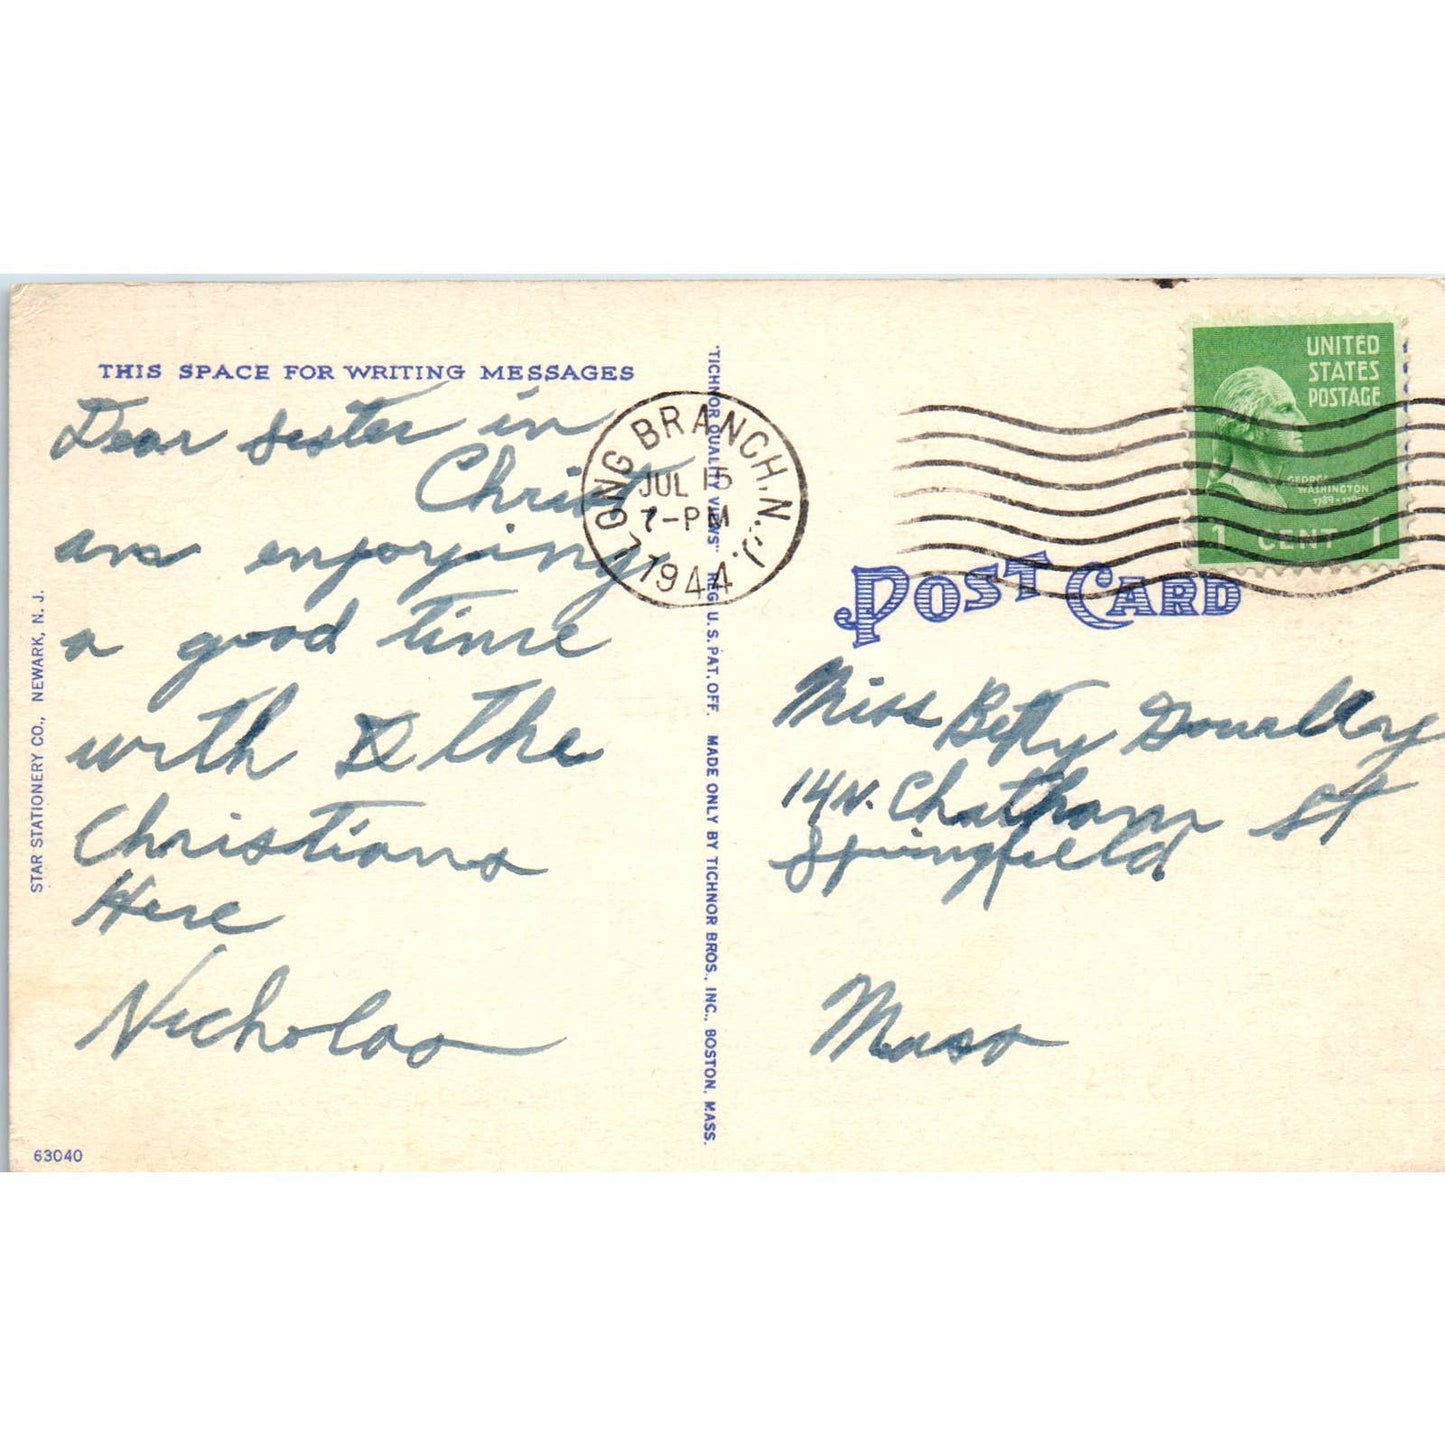 THIS SPACE FOR WRITING MESSAGES
Dear sister in
Christ
am enjorying
a good time
with the
Christians
Here
Nicholas
STAR STATIONERY CO., NEWARK, N. J.
63040
"TICHNOR QUALITY VIEWS" REG. U. S. PAT. OFF. MADE ONLY BY TICHNOR BROS., INC., BOSTON, MASS.
LONG BRANCH, N.J.
JUL 15
7-PM
1944
UNITED
STATES
POSTAGE
GEORGE
WASHINGTON
1 CENT 1
POST CARD
Miss Betty
14 N. Chatham St
Springfield
Mass